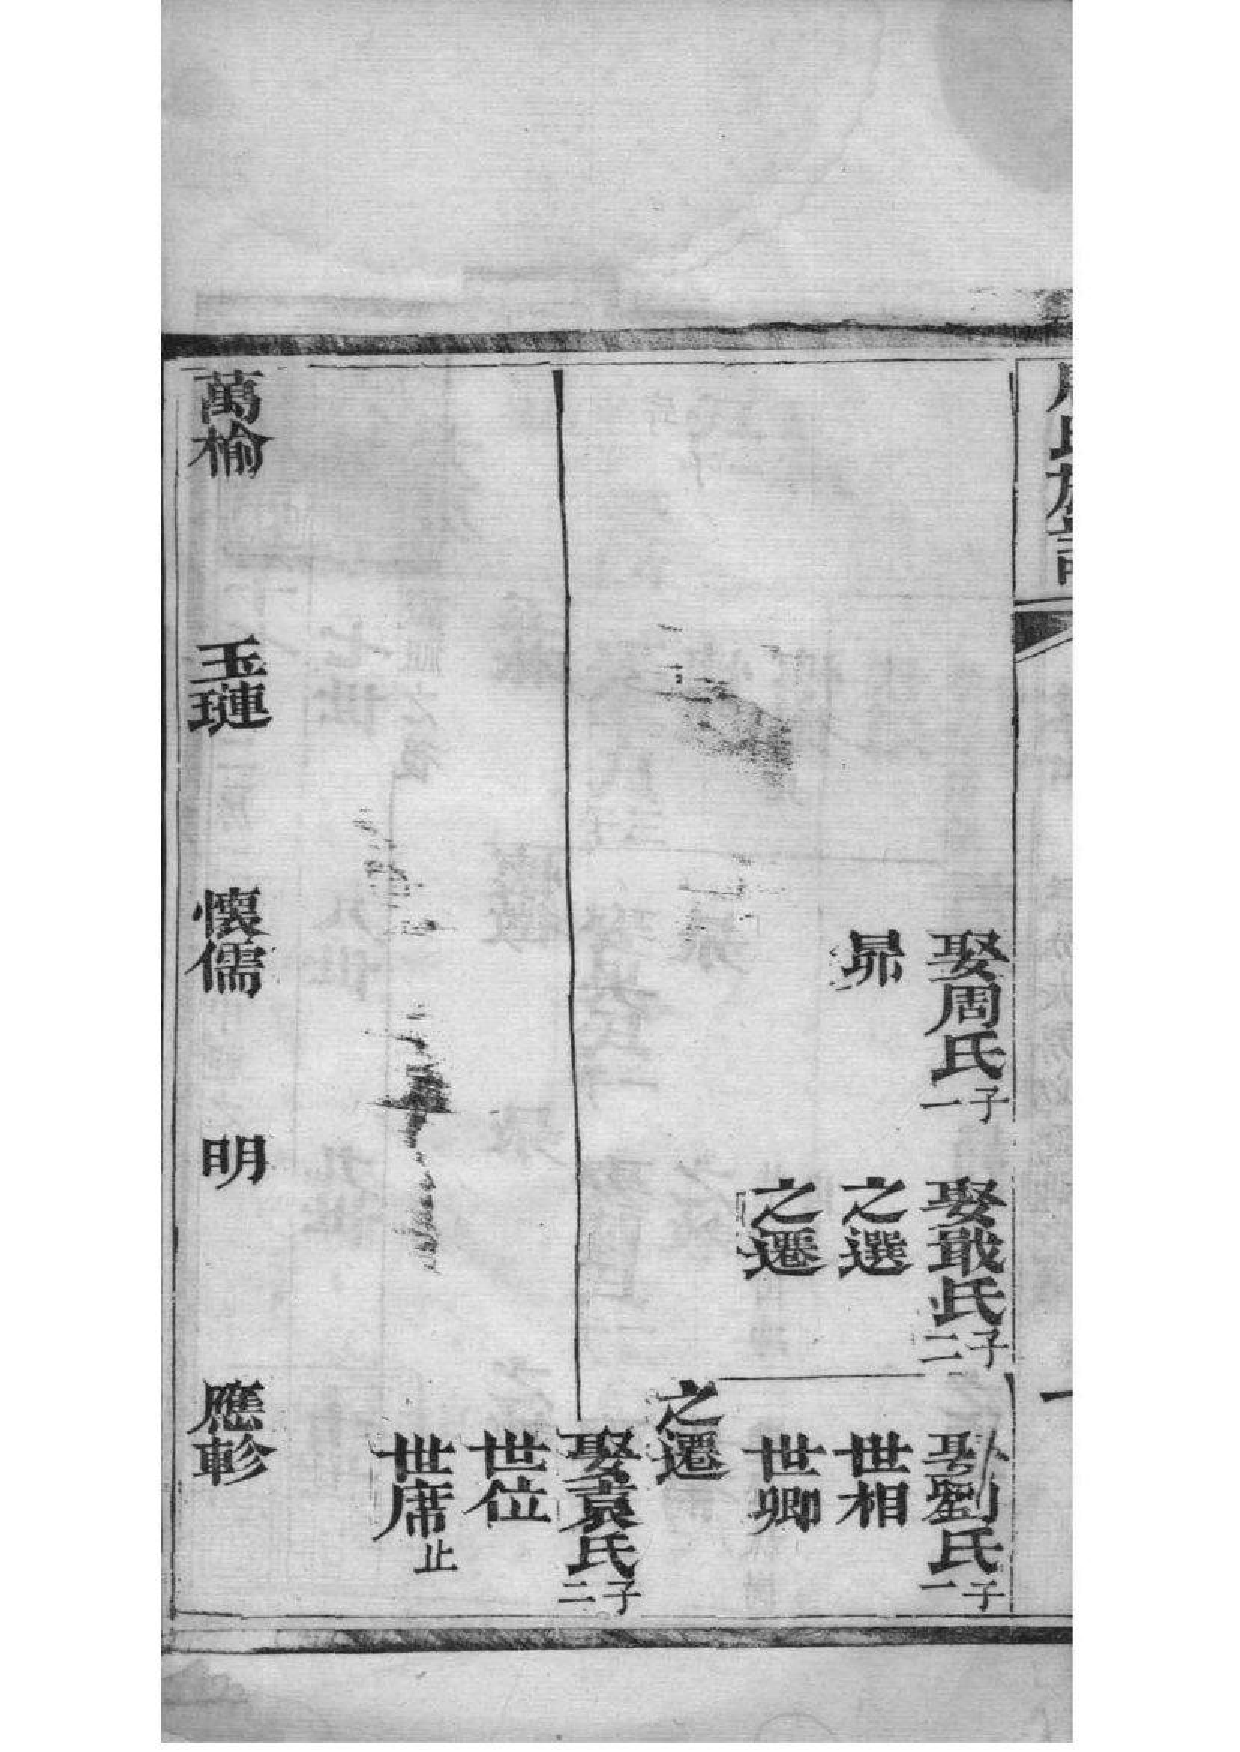 氏族譜
娶周氏一子
娶戢氏二子
娶劉氏一子
昴
之選
世相
之遷
世卿
之遷
娶袁氏二子
世位
世席止
萬榆
玉璉
懷儒
明
應軫